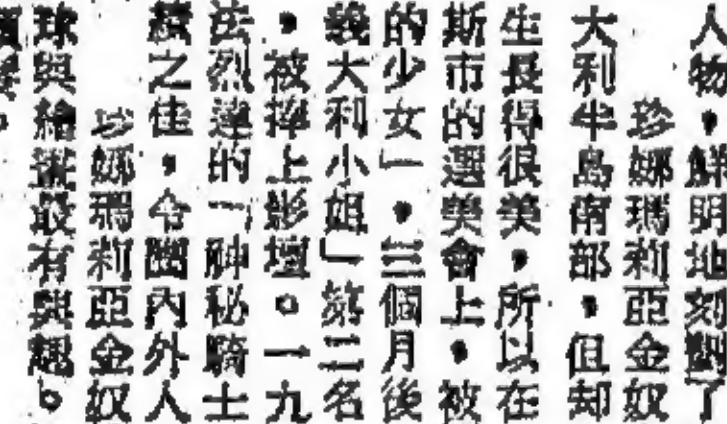 人物，鮮明地刻劃了
珍娜瑪莉亞金奴
大利半島南部，但却
生長得很美，所以在
斯市的選美會上，被
的少女」，三個月後
幾大利小姐」第二名
，被捧上影壇。一九
法烈達的「神秘騎士
之佳，令國內外人
珍娜瑪莉亞金奴
球與繪畫最有興趣。